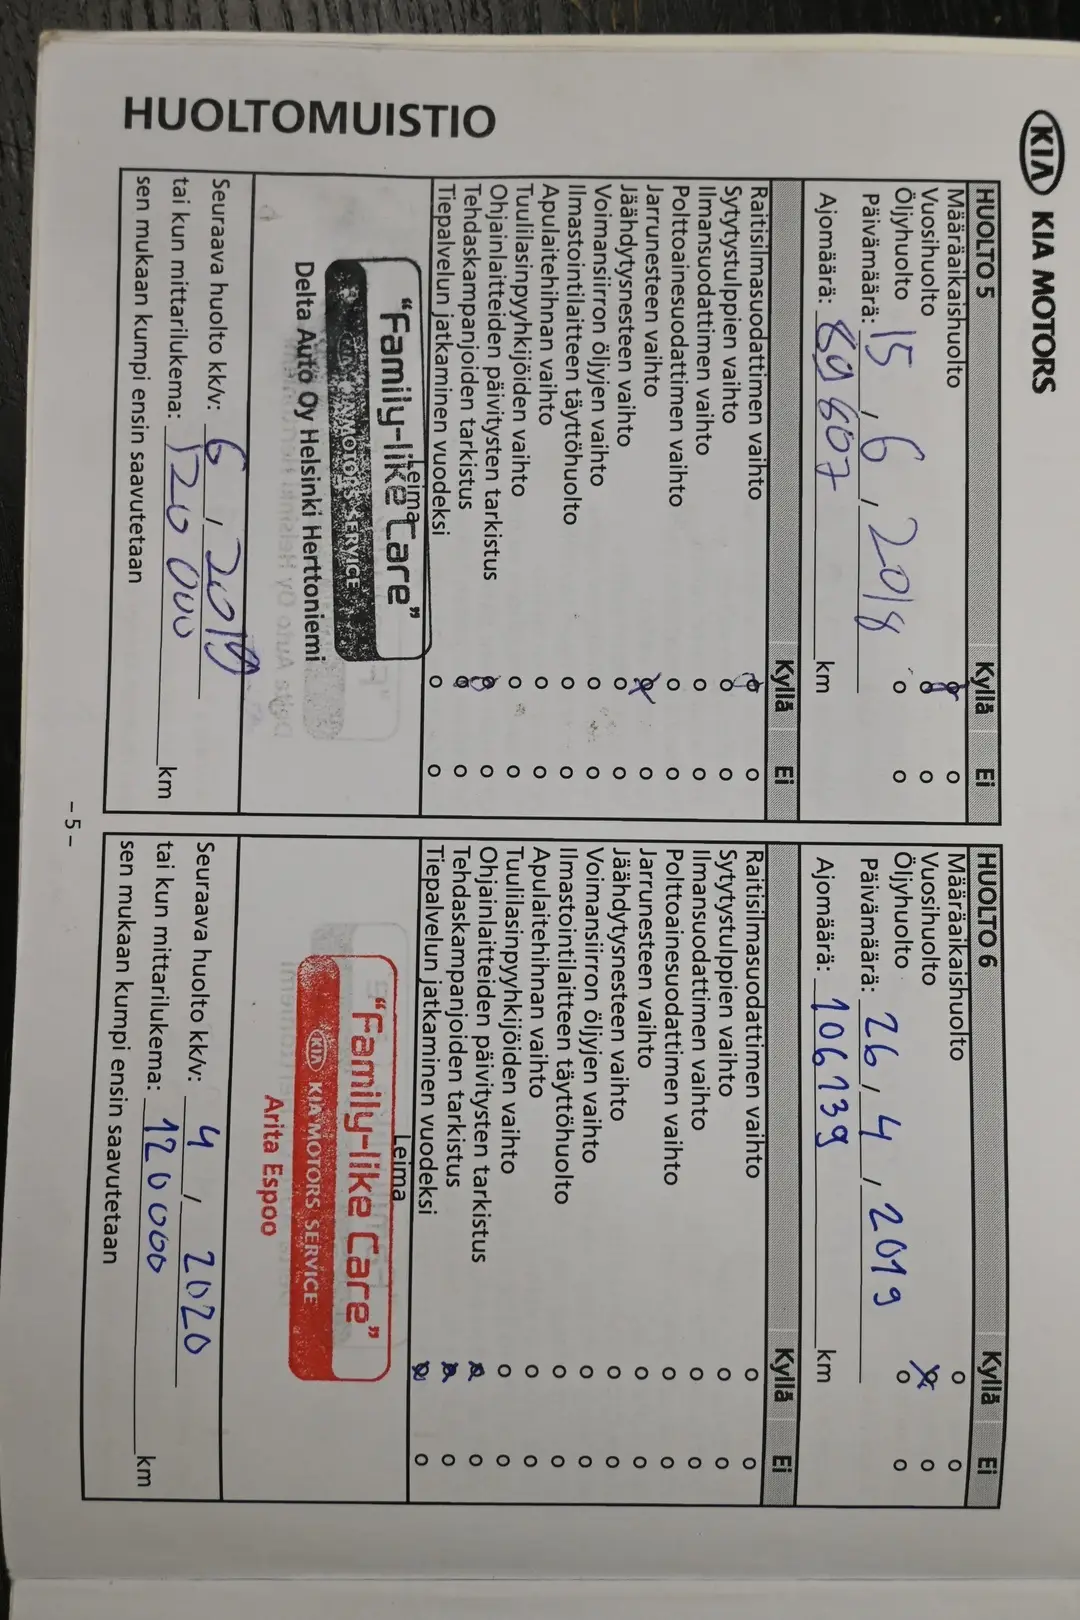 KIA KIA MOTORS
HUOLTOMUISTIO
HUOLTO 5 Kyllä Ei
Määräaikaishuolto
Vuosihuolto
Öljyhuolto
Päivämäärä: 15, 6, 2018
Ajomäärä: 89 607 km
Kyllä Ei
Raitisilmasuodattimen vaihto
Sytytystulppien vaihto
Ilmansuodattimen vaihto
Polttoainesuodattimen vaihto
Jarrunesteen vaihto
Jäähdytysnesteen vaihto
Voimansiirron öljyjen vaihto
Ilmastointilaitteen täyttöhuolto
Apulaitehihnan vaihto
Tuulilasinpyyhkijöiden vaihto
Ohjainlaitteiden päivitysten tarkistus
Tehdaskampanjoiden tarkistus
Tiepalvelun jatkaminen vuodeksi
Leima
"Family-like Care"
KIA KIA MOTORS SERVICE
Delta Auto Oy Helsinki Herttoniemi
Seuraava huolto kk/v: 6, 2019
tai kun mittarilukema: 120 000 km
sen mukaan kumpi ensin saavutetaan
HUOLTO 6 Kyllä Ei
Määräaikaishuolto
Vuosihuolto
Öljyhuolto
Päivämäärä: 26, 4, 2019
Ajomäärä: 106139 km
Kyllä Ei
Raitisilmasuodattimen vaihto
Sytytystulppien vaihto
Ilmansuodattimen vaihto
Polttoainesuodattimen vaihto
Jarrunesteen vaihto
Jäähdytysnesteen vaihto
Voimansiirron öljyjen vaihto
Ilmastointilaitteen täyttöhuolto
Apulaitehihnan vaihto
Tuulilasinpyyhkijöiden vaihto
Ohjainlaitteiden päivitysten tarkistus
Tehdaskampanjoiden tarkistus
Tiepalvelun jatkaminen vuodeksi
Leima
"Family-like Care"
KIA KIA MOTORS SERVICE
Arita Espoo
Seuraava huolto kk/v: 4, 2020
tai kun mittarilukema: 120 000 km
sen mukaan kumpi ensin saavutetaan
- 5 -